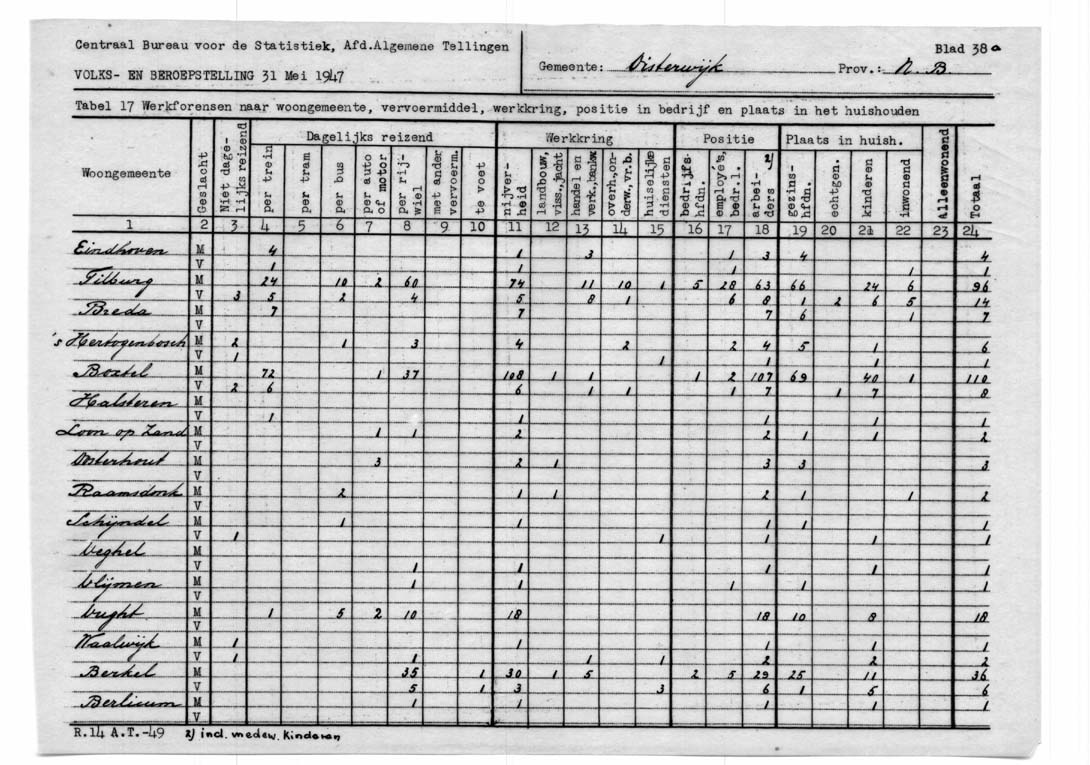 Centraal Bureau voor de Statistiek, Afd.Algemene Tellingen
VOLKS- EN BEROEPSTELLING 31 Mei 1947
Gemeente: Oisterwijk Prov.: N. B.
Blad 38a
Tabel 17 Werkforensen naar woongemeente, vervoermiddel, werkkring, positie in bedrijf en plaats in het huishouden
Woongemeente Geslacht Niet dage-lijks reizend Dagelijks reizend Werkkring Positie Plaats in huish. Alleenwonend Totaal
per trein per tram per bus per auto of motor per rij-wiel met ander vervoerm. te voet nijver-heid landbouw, viss., jacht handel en verk., bankw. overh., on-derw., vr.b. huiselijke diensten bedrijfs-hfdn. employé's, bedr.l. arbei-ders 2) gezins-hfdn. echtgen. kinderen inwonend
1 2 3 4 5 6 7 8 9 10 11 12 13 14 15 16 17 18 19 20 21 22 23 24
Eindhoven M 4 1 3 1 3 4 4
V 1 1 1 1 1
Tilburg M 24 10 2 60 74 11 10 1 5 28 63 66 24 6 96
V 3 5 2 4 5 8 1 6 8 1 2 6 5 14
Breda M 7 7 7 6 1 7
V
's Hertogenbosch M 2 1 3 4 2 2 4 5 1 6
V 1 1 1 1 1
Boxtel M 72 1 37 108 1 1 1 2 107 69 40 1 110
V 2 6 6 1 1 1 7 1 7 8
Halsteren M
V 1 1 1 1 1
Loon op Zand M 1 1 2 2 1 1 2
V
Oosterhout M 3 2 1 3 3 3
V
Raamsdonk M 2 1 1 2 1 1 2
V
Schijndel M 1 1 1 1 1
V 1 1 1 1 1
Veghel M
V 1 1 1 1 1
Vlijmen M 1 1 1 1 1
V
Vught M 1 5 2 10 18 18 10 8 18
V
Waalwijk M 1 1 1 1 1
V 1 1 1 1 2 2 2
Berkel M 35 1 30 1 5 2 5 29 25 11 36
V 5 1 3 3 6 1 5 6
Berlicum M 1 1 1 1 1
V
R.14 A.T.-49 2) incl. medew. kinderen